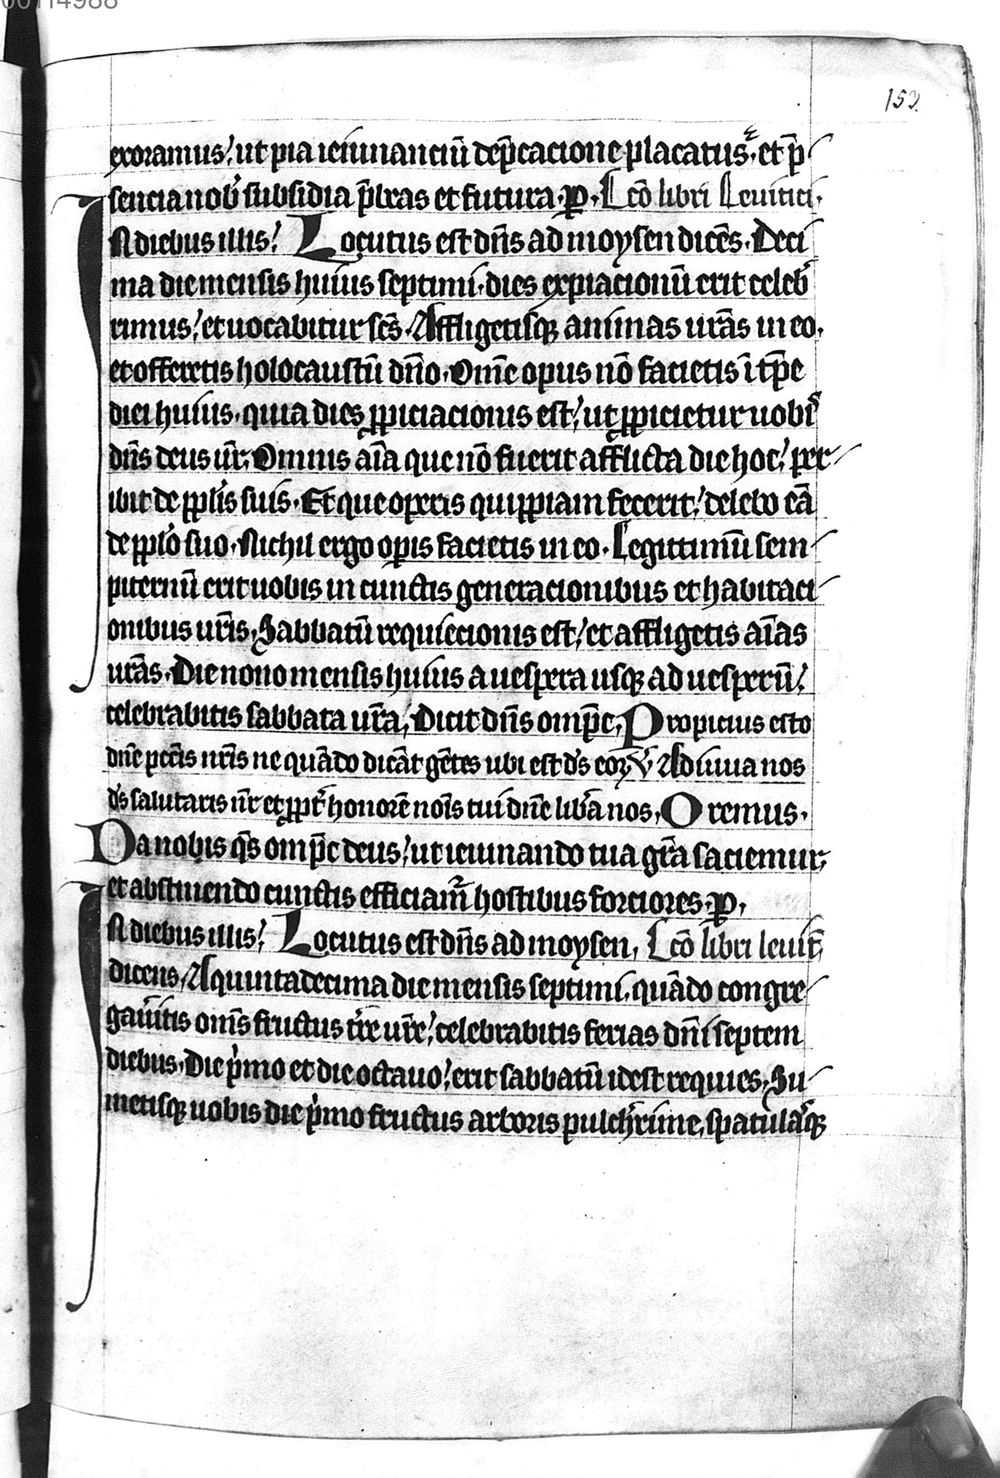 00114988
153.
exoramus. ut pia ieiunanciū dep̄cacione placatus. et p̄
sencia nob̾ subsidia p̄beas et futura. ꝑ. Lcō libri Leuitici.
IN diebus illis. Locutus est dn̄s ad moysen dicēs. Deci
ma die mensis huius septimi. dies expiacionū erit celeb̾
rimus. et uocabitur scs̄. Affligetisqꝫ animas ur̄as in eo.
et offeretis holocaustū dn̄o. Om̄e opus nō facietis ī tp̄e
diei huius. quia dies ꝓpiciacionis est. ut ꝓpicietur uobis
dn̄s deus ur̄. Omnis aīa que nō fuerit afflicta die hoc. per
ibit de pplīs suis. Et que operis quippiam fecerit. delebo eā
de pplō suo. Nichil ergo oꝑis facietis in eo. Legittimū sem
piternū erit uobis in cunctis generacionibus et habitaci
onibus ur̄is. Sabbatū requiecionis est. et affligetis aīas
ur̄as. Die nono mensis huius a uespera usqꝫ ad uesperū.
celebrabitis sabbata ur̄a. Dicit dn̄s omp̄c. Propicius esto
dn̄e pctīs nr̄is ne quādo dicāt gētes ubi est ds̄ eoꝝ V̄ Adiuua nos
ds̄ salutaris nr̄ et ꝓpt̾ honorē noīs tui dn̄e lib̾a nos. Oremus.
Da nobis qs̄ omp̄c deus. ut ieiunando tua gr̄a saciemur.
et abstinendo cunctis efficiam̄ hostibus forciores. ꝑ.
IN diebus illis. Locutus est dn̄s ad moysen, Lcō libri leuit̄
dicens. A quintadecima die mensis septimi. quādo congre
gaūitis om̄s fructus tr̄e ur̄e. celebrabitis ferias dn̄i septem
diebus. Die p̾mo et die octauo. erit sabbatū idest requies. Su
metisqꝫ uobis die p̾mo fructus arboris pulch̾rime, spatulasqꝫ